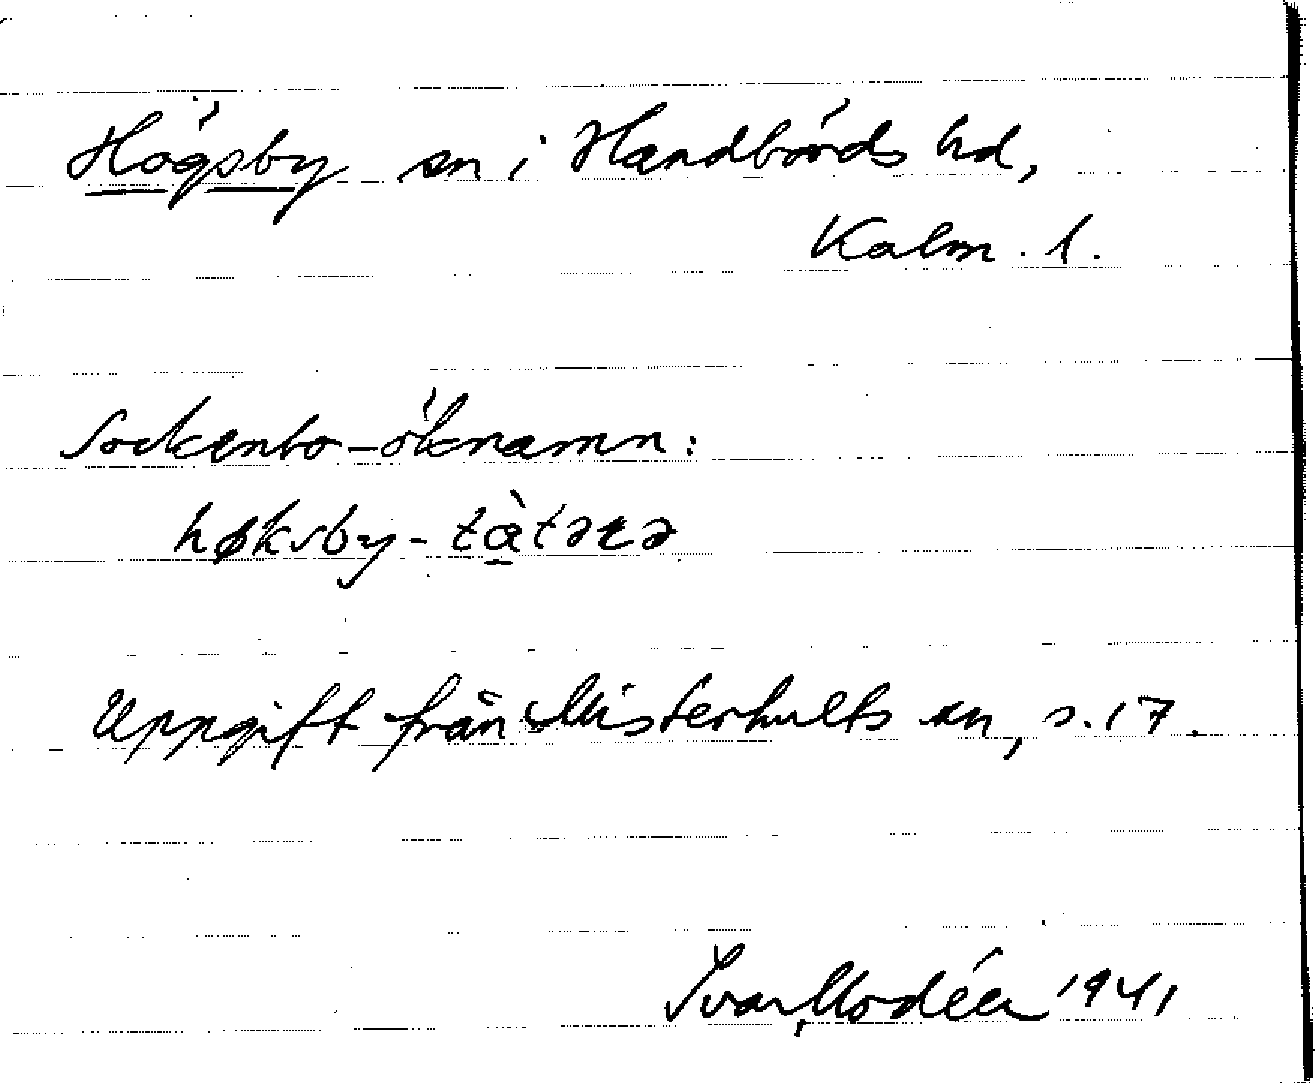 Högsby sn i Handbörds hd,
Kalm. l.
Sockenbo-öknamn:
høksby-tàtərə
Uppgift från Misterhults sn, s. 17.
Ivar Modéer 1941